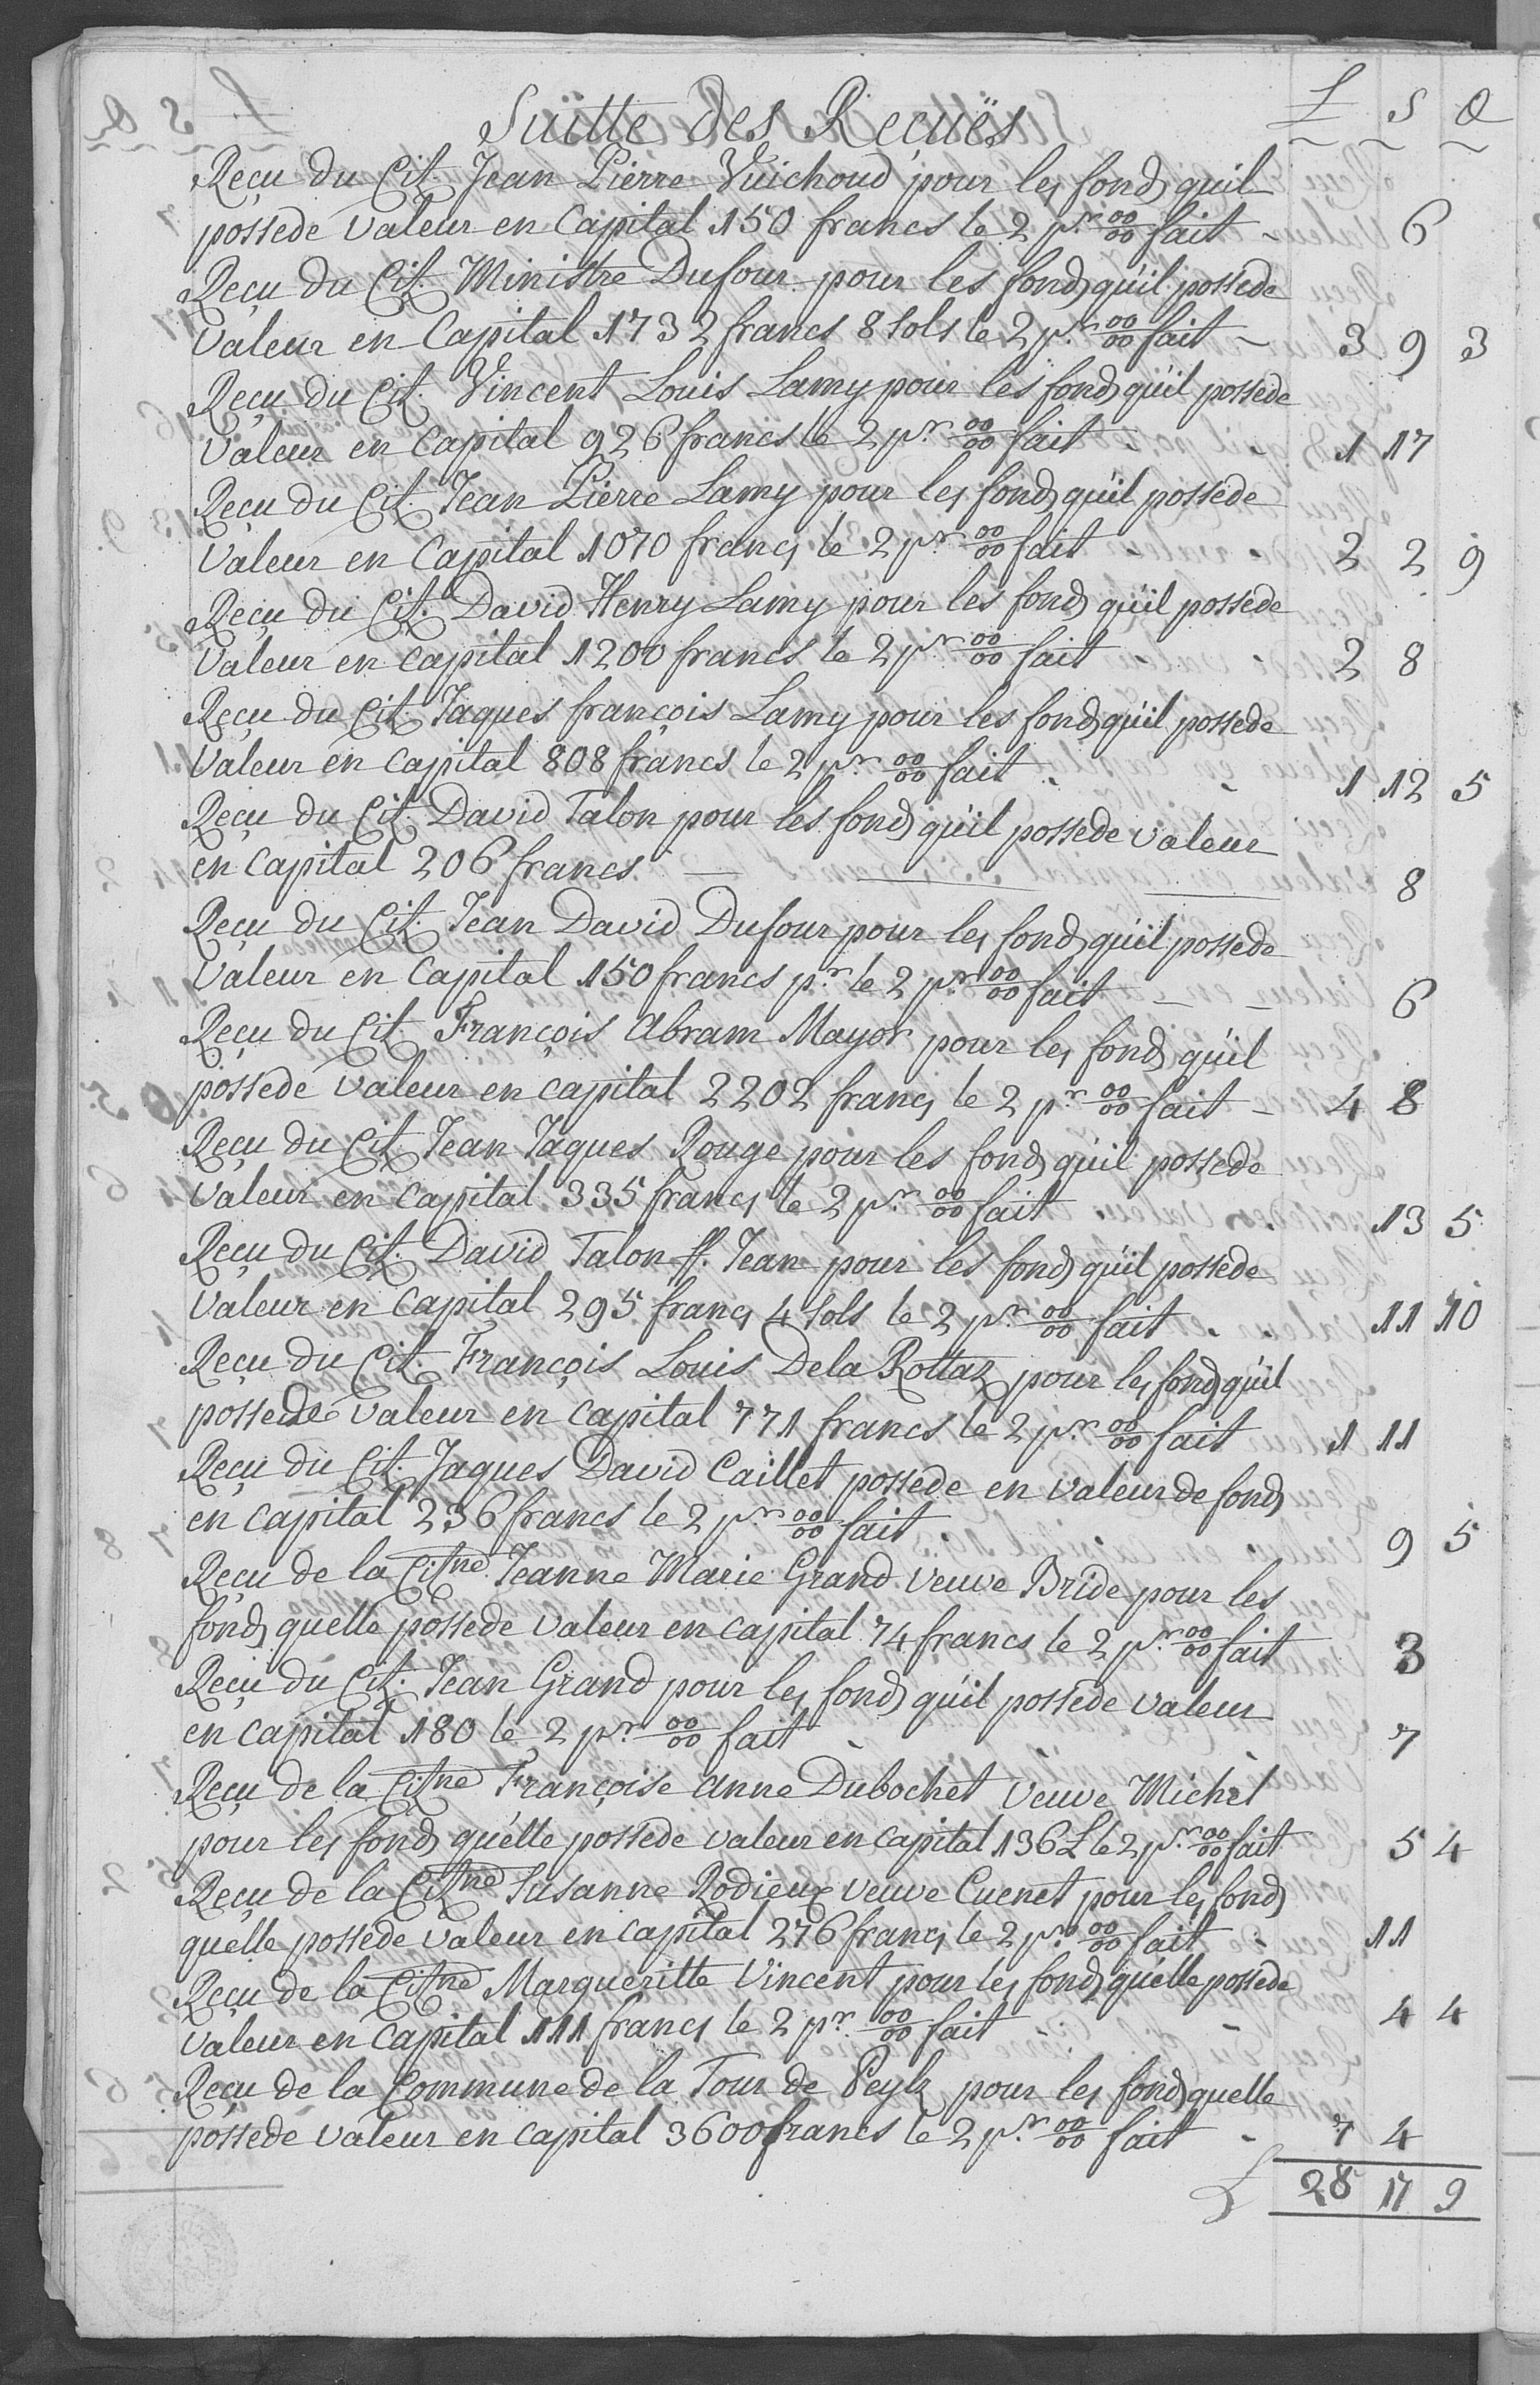 Suitte des Reçuës L S D
Reçu du Cit. Jean Pierre Vuichoud pour les fonds quil
possede valeur en Capital 150 francs le 2 pr 00/00 fait - 6
Reçu du Cit. Ministre Dufour pour les fonds qu'il possede
valeur en Capital 1732 francs 8 sols le 2 pr 00/00 fait - 3 9 3
Reçu du Cit. Vincent Louis Lamy pour les fonds qu'il possede
Valeur en Capital 926 francs le 2 pr 00/00 fait - - 1 17
Reçu du Cit. Jean Pierre Lamy pour les fonds qu'il possede
Valeur en Capital 1070 francs le 2 pr 00/00 fait - - 2 2 9
Reçu du Cit. David Henry Lamy pour les fonds qu'il possede
Valeur en capital 1200 francs le 2 pr 00/00 fait - 2 8
Reçu du Cit. Jaques françois Lamy pour les fonds qu'il possede
Valeur en capital 808 francs le 2 pr 00/00 fait - - 1 12 5
Reçu du Cit. David Talon pour les fonds qu'il possede valeur
en capital 206 francs — — — 8
Reçu du Cit. Jean David Dufour pour les fonds qu'il possede
Valeur en Capital 150 francs pr le 2 pr 00/00 fait - - 6
Reçu du Cit. François Abram Mayor pour les fonds qu'il
possede valeur en capital 2202 francs le 2 pr 00/00 fait - 4 8
Reçu du Cit. Jean Jaques Rouge pour les fonds qu'il possede
Valeur en Capital 335 francs le 2 pr 00/00 fait - 13 5
Reçu du Cit. David Talon ff. Jean pour les fonds qu'il possede
Valeur en Capital 295 francs 4 sols le 2 pr 00/00 fait - - 11 10
Reçu du Cit. François Louis Dela Rottaz pour les fonds qu'il
possede valeur en capital 771 francs le 2 pr 00/00 fait 1 11
Reçu du Cit. Jaques David Caillet possede en valeur de fonds
en capital 236 francs le 2 pr 00/00 fait - 9 5
Reçu de la Citne Jeanne Marie Grand veuve Bride pour les
fonds quelle possede valeur en capital 74 francs le 2 pr 00/00 fait 3
Reçu du Cit. Jean Grand pour les fonds qu'il possede valeur
en capital 180 le 2 pr 00/00 fait - - 7
Reçu de la Citne Françoise Anne Dubochet veuve Michel
pour les fonds qu'elle possede valeur en capital 136 L le 2 pr 00/00 fait 5 4
Reçu de la Citne Susanne Rodieux veuve Cuenet pour les fonds
quelle possede valeur en capital 276 francs le 2 pr 00/00 fait - 11
Reçu de la Citne Margueritte Vincent pour les fonds qu'elle possede
valeur en Capital 111 francs le 2 pr 00/00 fait - 4 4
Reçu de la Commune de la Tour de Peylz pour les fonds quelle
possede valeur en capital 3600 francs le 2 pr 00/00 fait - 7 4
L 28 17 9